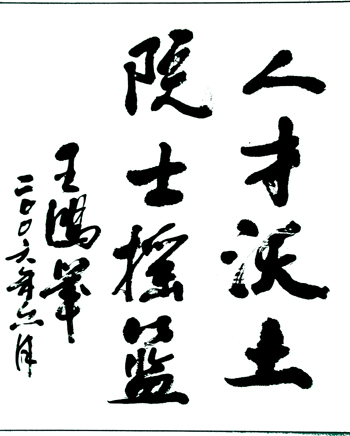 人才沃土
院士摇篮
王鸿举
二〇〇六年六月